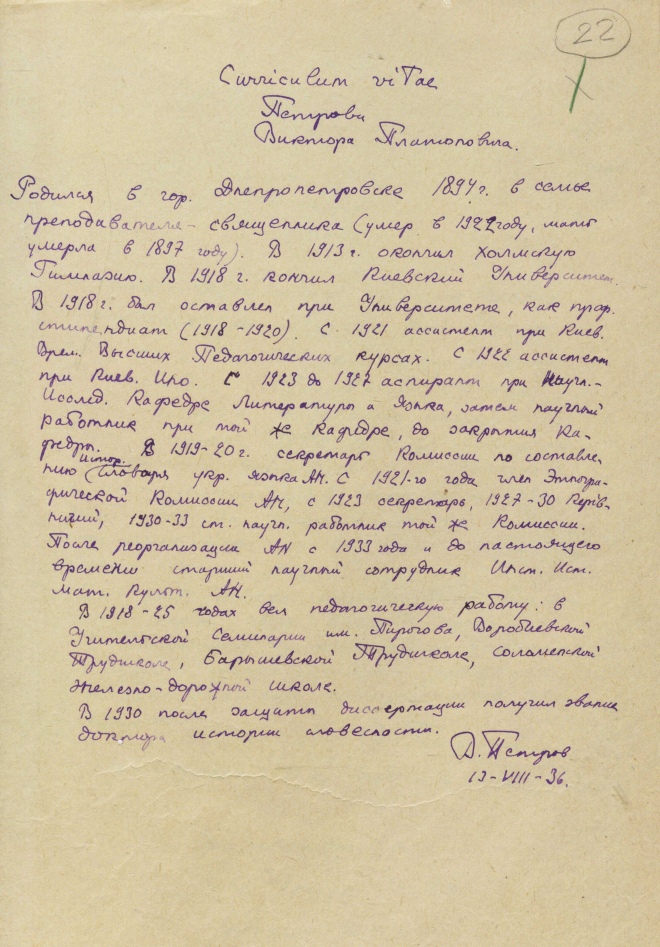 22
Curriculum vitae
Петрова
Виктора Платоновича.
Родился в гор. Днепропетровске 1894 г. в семье
преподавателя-священника (умер в 1922 году, мать
умерла в 1897 году). В 1913 г. окончил Холмскую
Гимназию. В 1918 г. кончил Киевский Университет.
В 1918 г. был оставлен при Университете, как проф.
стипендиат (1918-1920). С 1921 ассистент при Киев.
Врем. Высших Педагогических курсах. С 1922 ассистент
при Киев. Ино. С 1923 до 1927 аспирант при Научн.-
Исслед. Кафедре Литературы и Языка, затем научный
работник при той ж Кафедре, до закрытия Ка-
федры. В 1919-20 г. секретарь Комиссии по составле-
нию истор. Словаря укр. языка АН. С 1921-го года член Этногра-
фической Комиссии АН, с 1923 секретарь, 1927-30 Керів-
ничий, 1930-33 ст. научн. работник той ж Комиссии.
После реорганизации АН с 1933 года и до настоящего
времени старший научный сотрудник Инст. Ист.
Мат. Культ. АН.
В 1918-25 годах вел педагогическую работу: в
Учительской Семинарии им. Пирогова,
Трудшколе, Барышевской Трудшколе, Соломенской
Железно-дорожной школе.
В 1930 после защиты диссертации получил звание
доктора истории словесности.
В. Петров
13-VIII-36.